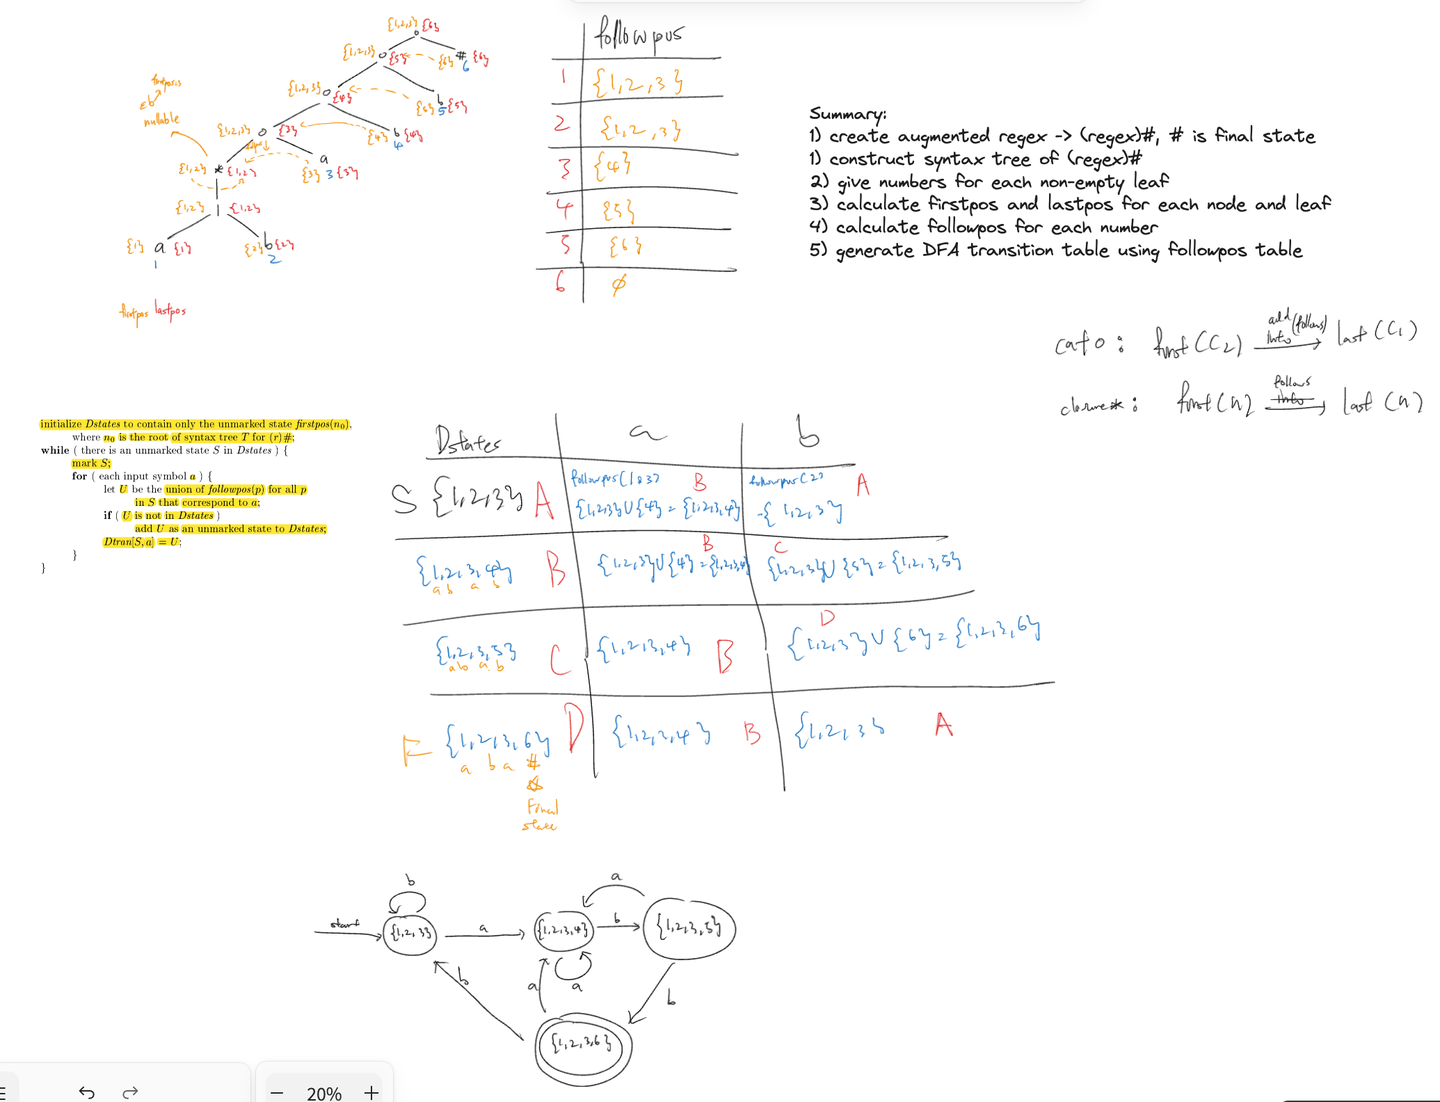 {1,2,3} {6}
{1,2,3} {5} {6} # {6}
6
{1,2,3} {4} {5} b {5}
5
firstpos
nullable
{1,2,3} {3} {4} b {4}
4
{1,2} * {1,2} a
{3} 3 {3}
{1,2} | {1,2}
{1} a {1} {2} b {2}
1 2
firstpos lastpos
followpos
1 {1,2,3}
2 {1,2,3}
3 {4}
4 {5}
5 {6}
6 ∅
Summary:
1) create augmented regex -> (regex)#, # is final state
1) construct syntax tree of (regex)#
2) give numbers for each non-empty leaf
3) calculate firstpos and lastpos for each node and leaf
4) calculate followpos for each number
5) generate DFA transition table using followpos table
add (follows)
into
cat o : first (C2) last (C1)
follows
into
closure * : first (n) last (n)
initialize Dstates to contain only the unmarked state firstpos(n0),
where n0 is the root of syntax tree T for (r)#;
while ( there is an unmarked state S in Dstates ) {
mark S;
for ( each input symbol a ) {
let U be the union of followpos(p) for all p
in S that correspond to a;
if ( U is not in Dstates )
add U as an unmarked state to Dstates;
Dtran[S, a] = U;
}
}
Dstates a b
followpos(1 & 3) B followpos(2) A
S {1,2,3} A {1,2,3} U {4} = {1,2,3,4} = {1,2,3}
B C
{1,2,3,4} B {1,2,3} U {4} = {1,2,3,4} {1,2,3} U {5} = {1,2,3,5}
a b a b
D
{1,2,3,5} C {1,2,3,4} B {1,2,3} U {6} = {1,2,3,6}
a b a b
F {1,2,3,6} D {1,2,3,4} B {1,2,3} A
a b a #
Final
state
b a
start {1,2,3} a {1,2,3,4} b {1,2,3,5}
b a a b
{1,2,3,6}
20%